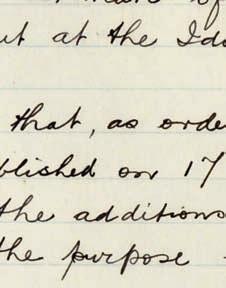 ut at the Ido
that, as orde
blished on 17
the additions
the purpose